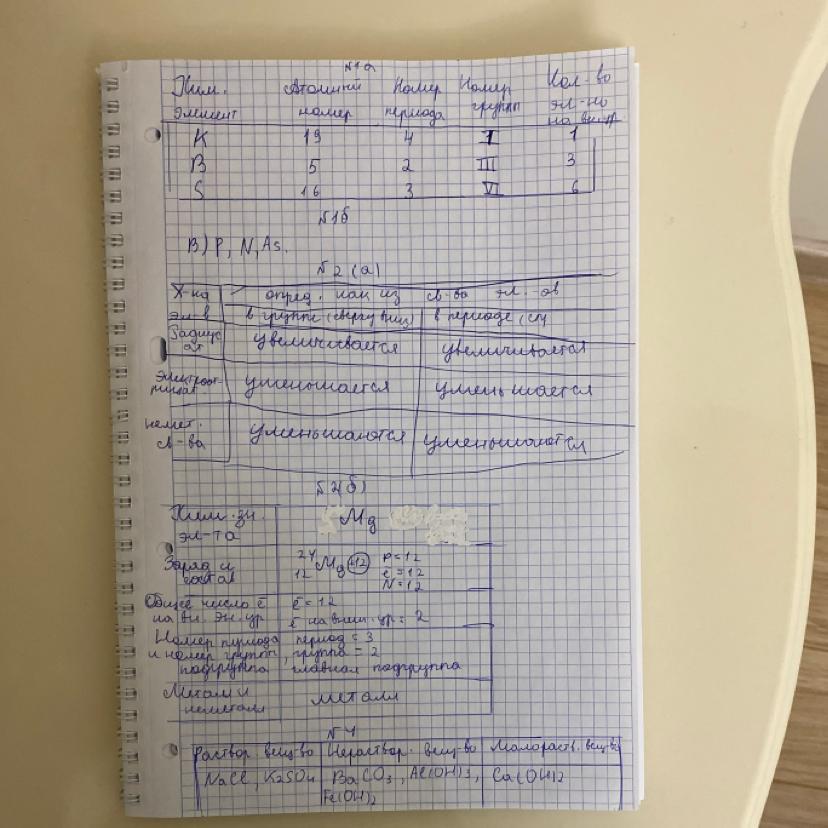 N1а
Хим. Атомный Номер Номер Кол-во
элемент номер периода групп эл-но
на вн.ур.
K 19 4 I 1
B 5 2 III 3
S 16 3 VI 6
N1б
В) P, N, As.
N2 (а)
Х-ка опред. как из св-ва эл. ов
эл-в в группе (сверху вниз) в периоде (сп
Радиус увеличивается увеличивается
ат
Электроот- уменьшается уменьшается
немет. уменьшаются уменьшаются
св-ва
N2(б)
Хим.зн. Mg
эл-та
Заряд и 24 Mg +12 p=12
состав 12 ē=12
N=12
Общее число ē ē=12
на вн. эн. ур ē на внеш. ур.= 2
Номер периода период = 3
и номер групп, группа = 2
подгруппа главная подгруппа
Металл и металл
неметалл
N4
раствор. вещ-во Нераствор. вещ-во Малораств. вещ-во
NaCl, K2SO4 BaCO3, Al(OH)3, Ca(OH)2
Fe(OH)2